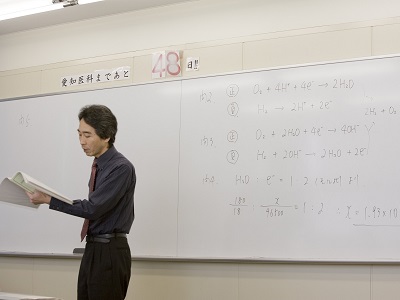 愛知医科まであと 48 日!!
問2 正 O₂ + 4H⁺ + 4e⁻ → 2H₂O
負 H₂ → 2H⁺ + 2e⁻
2H₂ + O₂
問3. 正 O₂ + 2H₂O + 4e⁻ → 4OH⁻
負 H₂ + 2OH⁻ → 2H₂O + 2e⁻
問4. H₂O : e⁻ = 1 : 2
180/18 : x/96500 = 1 : 2 ∴ x = 1.93×10